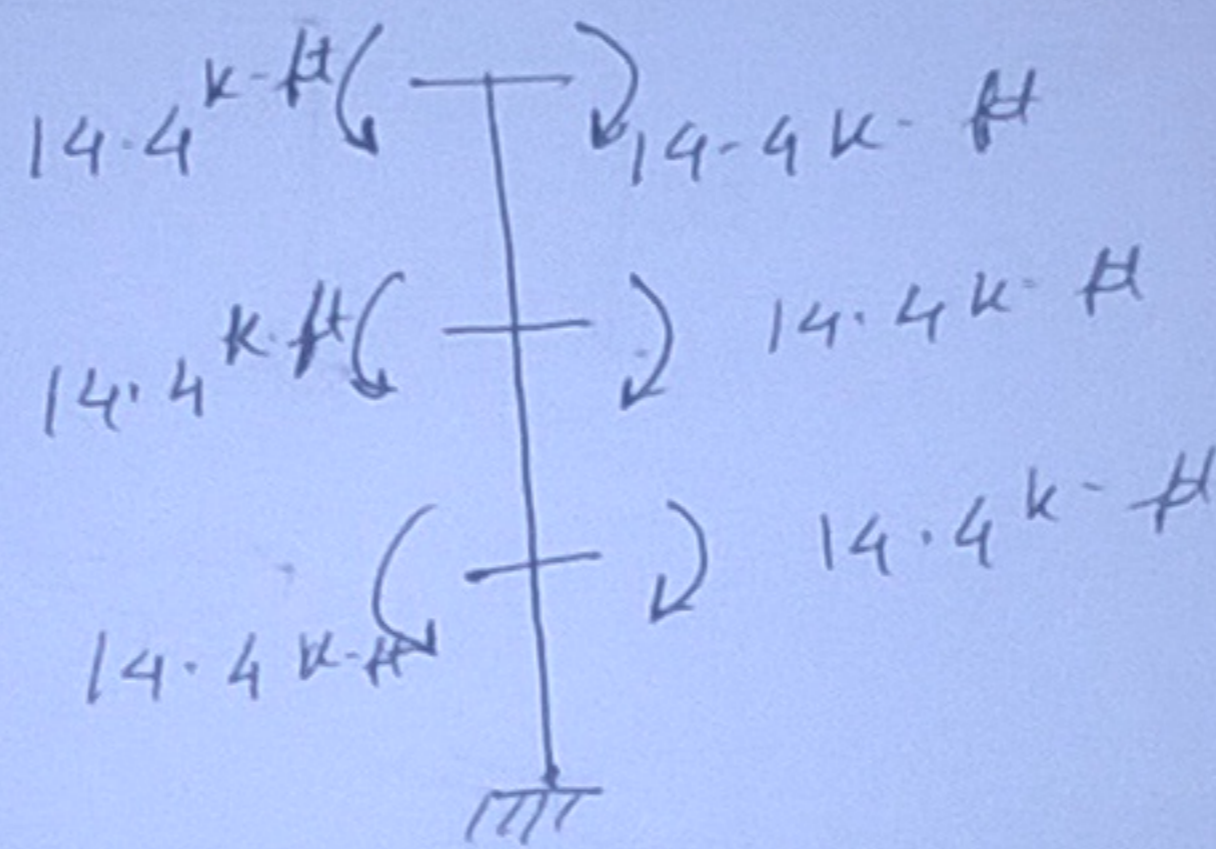 14.4 k-ft
14.4 k-ft
14.4 k-ft
14.4 k-ft
14.4 k-ft
14.4 k-ft